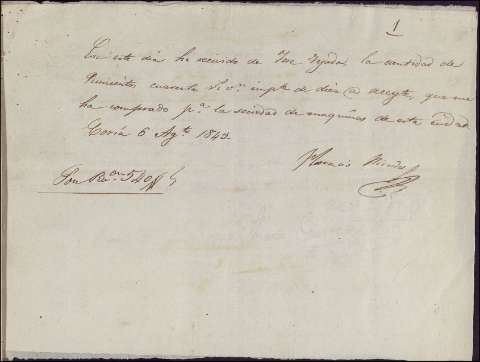 1
En este dia he recivido de Jose Tejada la cantidad de
Quinientos cuarenta r.s v.n impte de diez @ aceyte, que me
ha comprado p.a la sociedad de maquinas de esta ciudad
Coria 6 Ag.to 1842.
Son R.on 540